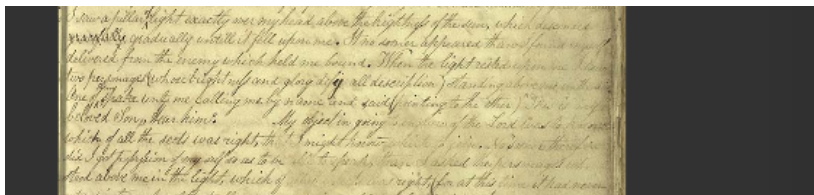 I saw a pillar of light exactly over my head above the brightness of the sun, which descended
gracefully gradually untill it fell upon me. It no sooner appeared than I found myself
delivered from the enemy which held me bound. When the light rested upon me I saw
two personages (whose brightness and glory defy all description) standing above me in the air
One of spake unto me calling me by name and said (pointing to the other) This is my
beloved Son, Hear him. My object in going to enquire of the Lord was to know
which of all the sects was right, that I might know which to join. No sooner therefore
did I get possession of myself so as to be able to speak, than I asked the personages who
stood above me in the light, which of all the sects was right, for at this time it had never